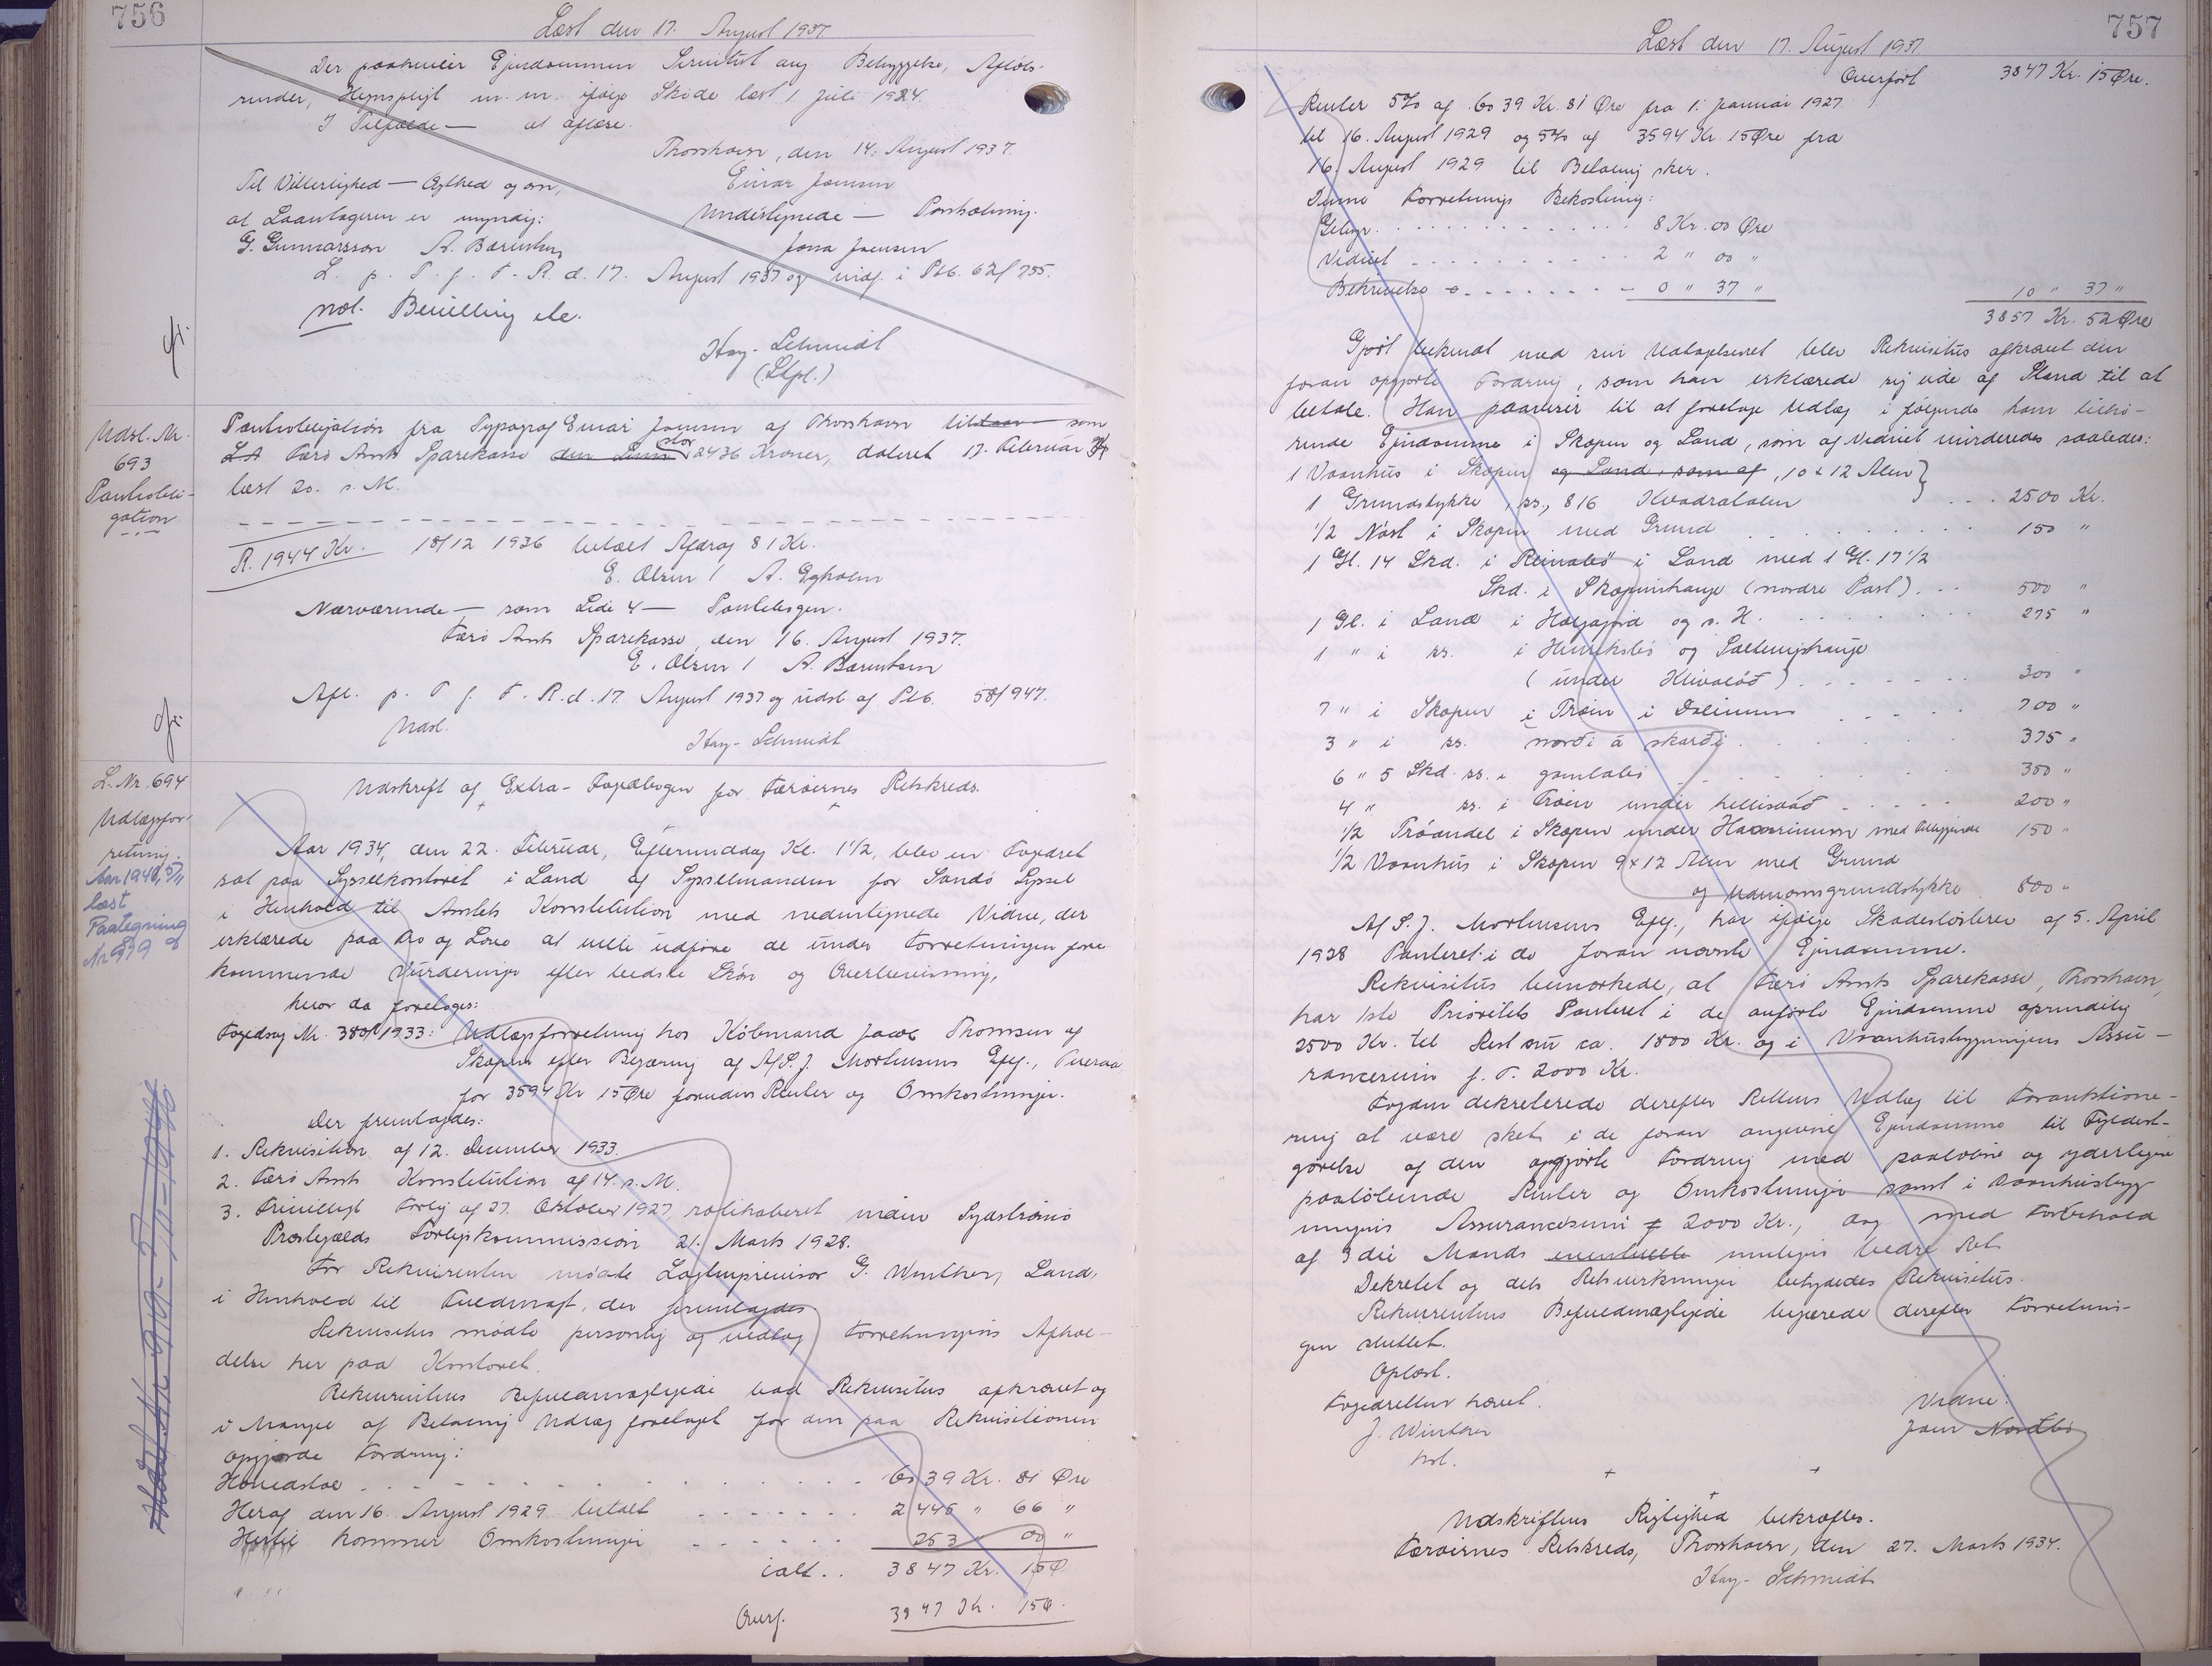 756
Læst den 17. August 1937
Der paahviler Ejendommen Servitut ang Bebyggelse, Afløbs-
render, Hegnspligt m. m. ifølge Skøde læst 1 Juli 1924.
I Tilfælde — at aflæse.
Thorshavn, den 14. August 1937.
Til Vitterlighed — Ægthed og om,
Einar Joensen
at Laantageren er myndig:
Undertegnede —
G. Gunnarsson A. Bærentsen
Jona Joensen
L. p. T. f. F. R. d. 17. August 1937 og indf. i Ptb. 62/755.
not. Bevilling etc.
Hay-Schmidt
(Stpl.)
Udsl. Nr.
693
Pantobli-
gation
Pantobligation fra Typograf Einar Joensen af Thorshavn til som
Færø Amts Sparekasse stor 2436 Kroner, dateret 17. Februar 34
læst 20. s. M.
R. 1944 Kr. 18/12 1936 betalt Afdrag 81 Kr.
E. Olsen / A. Egholm
Nærværende — som Side 4 — Pantebogen.
Færø Amts Sparekasse, den 16. August 1937.
E. Olsen / A. Bærentsen
Afl. p. T. f. F. R. d. 17. August 1937 og udsl. af Ptb. 58/947.
Udsl.
Hay-Schmidt
L. Nr. 694
Udlægsfor-
retning.
læst
Paategning
Udskrift af Extra-Fogedbogen for Færøernes Retskreds.
Aar 1934, den 22. Februar, Eftermiddag Kl. 1½, blev en Fogedret
sat paa Sysselkontoret i Sand af Sysselmanden for Sandø Syssel
i Henhold til Amtets Konstitution med medundertegnede Vidne, der
erklærede paa Tro og Love at ville udføre de under Forretningen fore-
kommende Vurderinger efter bedste Skøn og Overbevisning,
hvor da foretoges:
Fogedsag Nr. 380/1933: Udlægsforretning hos Købmand Jacob Thomsen af
Skopun efter Begæring af A/S. J. Mortensens Eftf., Tveraa
for 3594 Kr 15 Øre foruden Renter og Omkostninger.
Der fremlagdes:
1. Rekvisition af 12. December 1933.
2. Færø Amts Konstitution af 14. s. M.
3. Frivilligt Forlig af 27. Oktober 1927 ratihaberet inden Sydstrømø
Præstegælds Forligskommission 21. Marts 1928.
For Rekvirenten mødte Lagtingsrevisor G. Winther, Sand,
i Henhold til Fuldmagt, der fremlagdes
Rekvisitus mødte personlig og vedtog Forretningens Afhol-
delse her paa Kontoret.
Rekvirentens Befuldmægtigede bad Rekvisitus afkrævet og
i Mangel af Betaling Udlæg foretaget for den paa Rekvisitionen
opgjorde Fordring:
Hovedstol . . . 6039 Kr. 81 Øre
Heraf den 16. August 1929 betalt . . . 2445 " 66 "
Hertil kommer Omkostninger . . . 253 " 00 "
ialt . . 3847 Kr. 15 Ø
Overf. 3847 Kr. 15 Ø.
757
Læst den 17. August 1937
Overført 3847 Kr. 15 Øre.
Renter 5% af 6039 Kr. 81 Øre fra 1. Januar 1927
til 16. August 1929 og 5% af 3594 Kr 15 Øre fra
16. August 1929 til Betaling sker.
Denne Forretnings Bekostning:
Gebyr . . . 8 Kr. 00 Øre
Vidnet . . . 2 " 00 "
Bekrivelse . . . 0 " 37 " 10 " 37 "
3857 Kr. 52 Øre
Gjort bekendt med sin Udtagelsesret blev Rekvisitus afkrævet den
foran opgjorte Fordring, som han erklærede sig ude af Stand til at
betale. Han paaviser til at foretage Udlæg i følgende ham tilhø-
rende Ejendomme i Skopun og Sand, som af Vidnet vurderedes saaledes:
1 Vaanhus i Skopun og Sand, som af, 10 x 12 Alen
1 Grundstykke, ss., 816 Kvadratalen . . . 2500 Kr.
1/2 Nøst i Skopun med Grund . . . 150 "
1 Gl. 14 Skd. i Reinabø i Sand med 1 Gl. 17 1/2
Skd. i Skopunhauge (nordre Part) . . . 500 "
1 Gl. i Sand i og s. H. . . . 275 "
1 " i ss. i og
(under) . . . 300 "
7 " i Skopun i Trøen i . . . 700 "
3 " i ss. norði á skarði . . . 375 "
6 " 5 Skd. ss. i gamlabø . . . 350 "
4 " ss. i Trøen under . . . 200 "
1/2 Tróandel i Skopun under med Tilliggende 150 "
1/2 Vaanhus i Skopun 9 x 12 Alen med Grund
og Udenomsgrundstykke 800 "
A/S. J. Mortensens Eftf., har ifølge Skadesløsbrev af 5. April
1928 Panteret i de foran nævnte Ejendomme.
Rekvisitus bemærkede, at Færø Amts Sparekasse, Thorshavn,
har 1ste Prioritets Panteret i de anførte Ejendomme oprindelig
2500 Kr. til Rest nu ca. 1800 Kr. og i Vaanhusbygningens Assu-
rancesum f. T. 2000 Kr.
Fogden dekreterede derefter Rettens Udlæg til Forauktione-
ring at være sket i de foran angivne Ejendomme til Fyldest-
gørelse af den opgjorte Fordring med paaløbne og yderligere
paaløbende Renter og Omkostninger samt i Vaanhusbyg-
ningens Assurancesum 2000 Kr., dog med Forbehold
af 3die Mands eventuelle muligvis bedre Ret
Dekretet og dets Retsvirkninger betydedes Rekvisitus.
Rekvirentens Befuldmægtigede begærede derefter Forretnin-
gen sluttet.
Oplæst.
Fogedretten hævet.
J. Winther
kst.
Vidne:
Joen Nordbø
Udskriftens Rigtighed bekræftes.
Færøernes Retskreds, Thorshavn, den 27. Marts 1934.
Hay-Schmidt